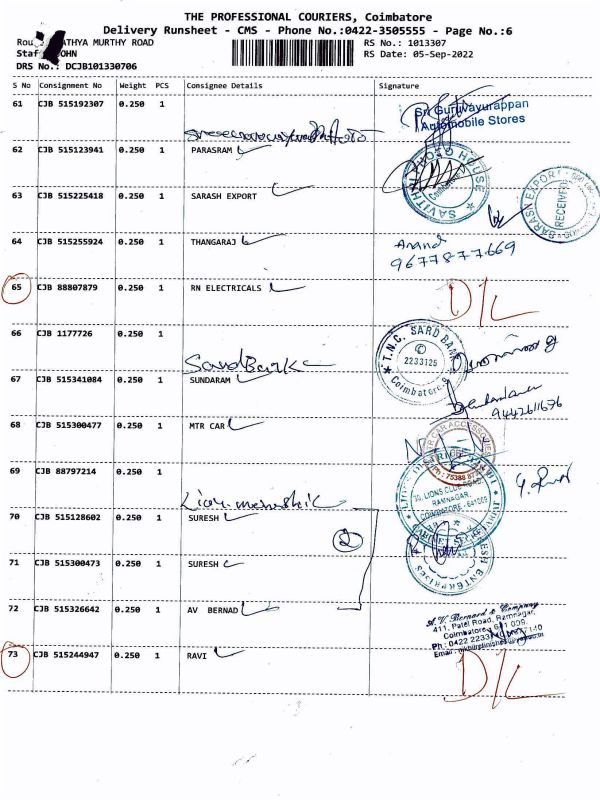 THE PROFESSIONAL COURIERS, Coimbatore
Delivery Runsheet - CMS - Phone No.:0422-3505555 - Page No.:6
ATHYA MURTHY ROAD
RS No.: 1013307
OHN
RS Date: 05-Sep-2022
DRS No.: DCJB101330706
S No Consignment No Weight PCS Consignee Details Signature
61 CJB 515192307 0.250 1
Sri Guruvayurappan
Automobile Stores
62 CJB 515123941 0.250 1 PARASRAM
SAVITHRI PHOTO HOUSE
Coimbatore
63 CJB 515225418 0.250 1 SARASH EXPORT
RECEIVED
64 CJB 515255924 0.250 1 THANGARAJ
Anand
9677877669
65 CJB 88807879 0.250 1 RN ELECTRICALS D/L
66 CJB 1177726 0.250 1
Sard Bank
T.N.C. SARD BANK
2233125
Coimbatore
67 CJB 515341084 0.250 1 SUNDARAM
9442611676
68 CJB 515300477 0.250 1 MTR CAR
CAR ACCESSORIES
69 CJB 88797214 0.250 1
LIONS CLUB ROAD
RAMNAGAR,
COIMBATORE - 641009
70 CJB 515128602 0.250 1 SURESH
2
CABINET
71 CJB 515300473 0.250 1 SURESH
ENTERPRISES
72 CJB 515326642 0.250 1 AV BERNAD
A.V. Bernard & Company
411, Patel Road, Ramnagar,
Coimbatore - 641 009.
Ph : 0422 2233
Email :
73 CJB 515244947 0.250 1 RAVI D/L